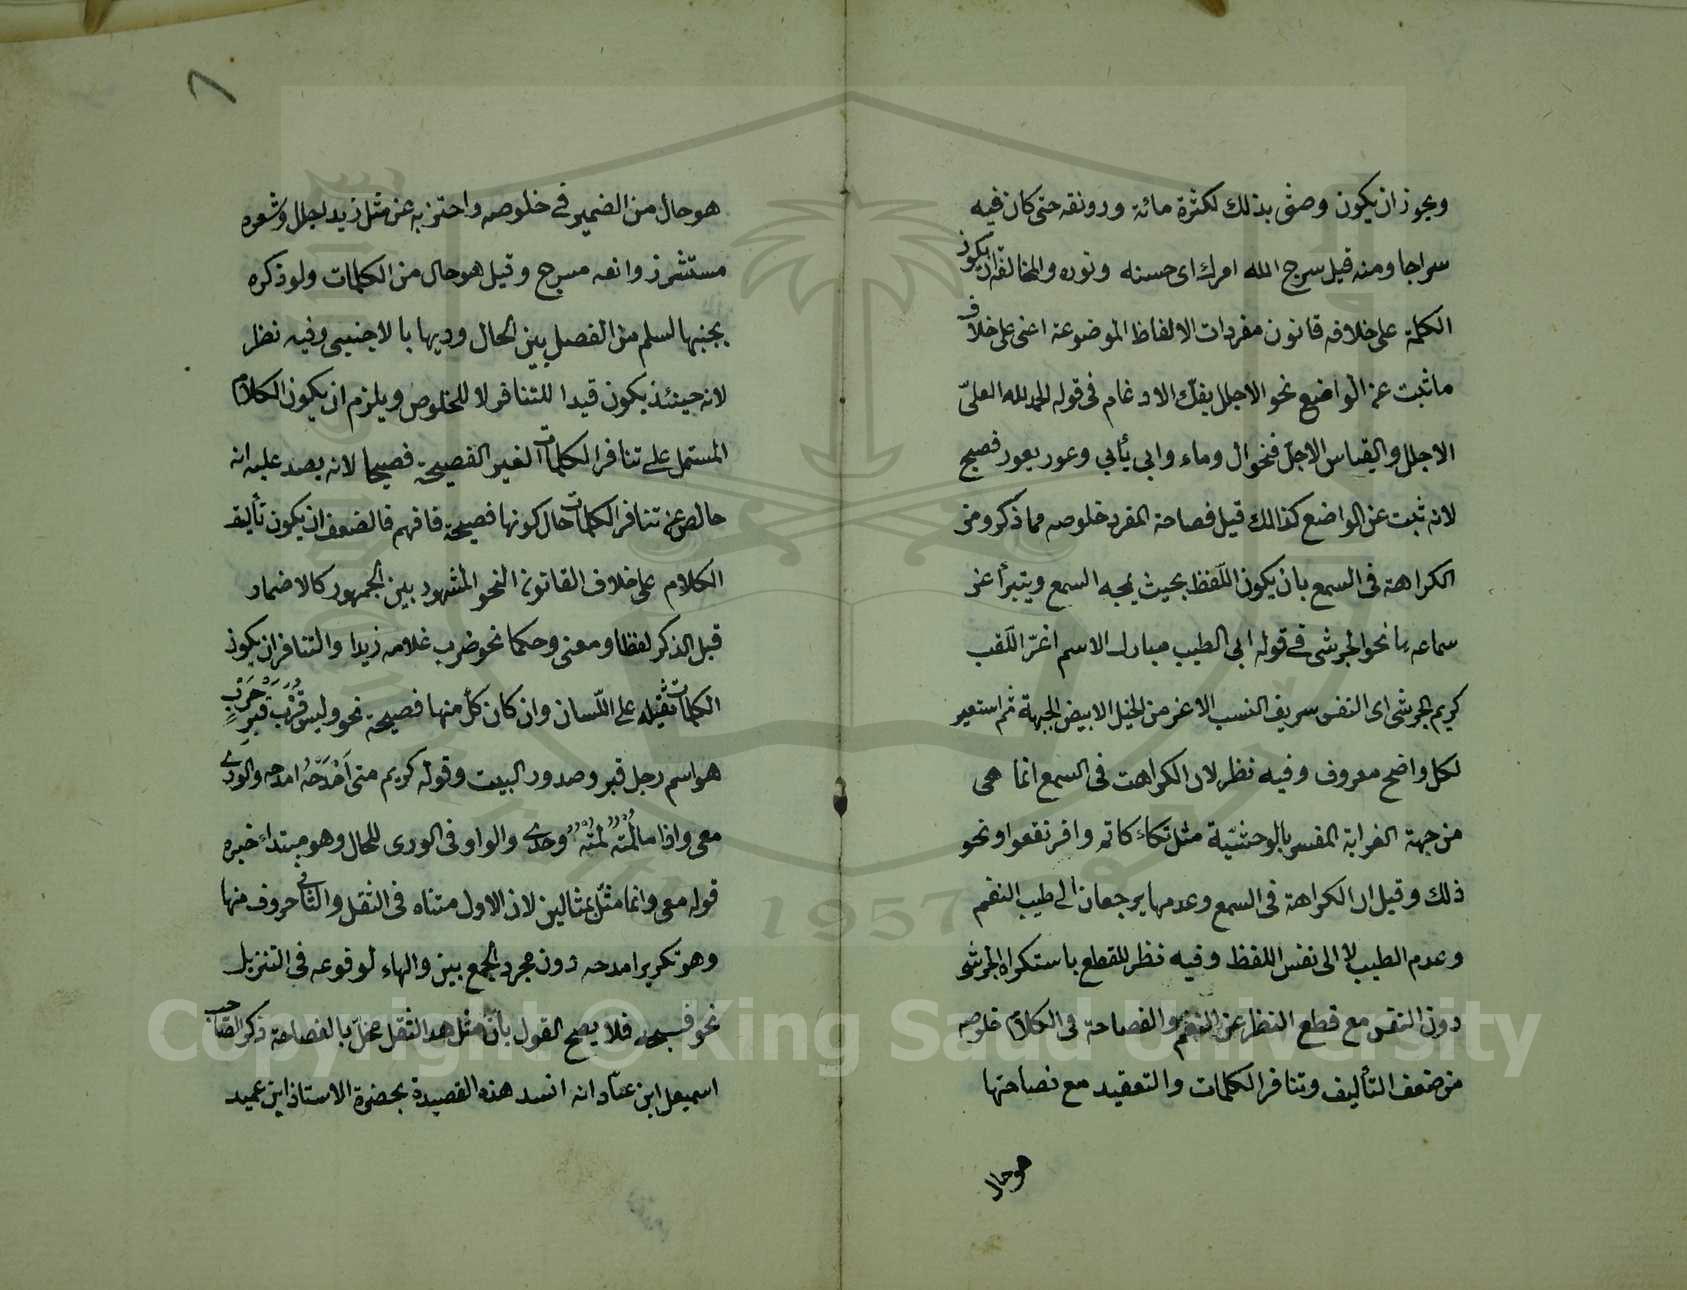 ويجوز ان يكون وصفى بذلك لكثرة مائة ورونقه حتى كان فيه
سراجا ومنه قيل سرج الله امرك اى حسنه ونوره والمخالفة ان يكون
الكلمة على خلافه قانون مفردات الالفاظ الموضوعة اعنى على خلاف
ما ثبت عن الواضع نحو الاجلل بفك الادغام فى قوله الحمد لله العلىّ
الاجلل والقياس الاجلّ فنحو ال وماء وابى يأبي وعور يعور فصيح
لانه ثبت عن الواضع كذالك قيل فصاحة المفرد خلوصه مما ذكر ومن
الكراهة فى السمع بان يكون اللّفظ بحيث يمجه السمع ويتبرأ عن
سماعه نحو الجرشى فى قوله ابى الطيب مبارك الاسم اغرّ اللّقب
كريم الجرشى اى النفس سريف النسب الاغر من الخيل الابيض الجبهة ثم استعير
لكل واضح معروف وفيه نظر لان الكراهت فى السمع انما هى
من جهة الغرابة المفسر بالوحشيّة مثل تكاكاتم وافرنقعوا ونحو
ذلك وقيل ان الكراهة فى السمع وعدمها يرجعان الى طيب النغم
وعدم الطيب لا الى نفس اللفظ وفيه نظر للقطع باستكراه الجرشى
دون النفس مع قطع النظر عن النغم والفصاحة فى الكلام خلوصه
من ضعف التأليف وتنافر الكلمات والتعقيد مع فصاحتها
هو حال
هو حال من الضمير فى خلوصه واحترز به عن مثل زيد اجلل وشعره
مستشرز وانفه مسرج وقيل هو حال من الكلمات ولو ذكره
بجنبها لسلم من الفصل بين الحال وديها بالاجنبى وفيه نظر
لانه حينئذ يكون قيدا للتنافر لا للخلوص ويلزم ان يكون الكلام
المستمل على تنافر الكلمات الغير الفصيحة فصيحا لانه يصد عليه انه
خالص عن تنافر الكلمات حال كونها فصيحة فافهم فالضعف ان يكون تأليف
الكلام على خلاف القانون النحو المشهود بين الجمهور كالاضمار
قبل الذكر لفظا ومعنى وحكما نحو ضرب غلامه زيدا والتنافر ان يكون
الكلمات ثقيله على اللّسان وان كان كلّ منها فصيحة نحو وليس قُرْبَ قبرِ حَرْبٍ
هو اسم رجل قبر وصدور البيت وقوله كريم متى اَمْدَحْهُ امدحه والورى
معى واذا ما لُمْتُه لمتُه وحدى والواو فى الورى للحال وهو مبتداء خبره
قوله معى وانما مثّل بمثالين لان الاول متناه فى الثقل والثانى حروف منها
وهو تكرير امدحه دون مجرد الجمع بين والهاء لوقوعه فى التنزيل
نحو فسبحه فلا يصح القول بانّ مثل هدا الثقل مخلّ بالفصاحة ذكر الصّاحب
اسمعيل ابن عبّاد انه انسد هذه القصيدة بحضرة الاستاذ ابن عميد
Copyright © King Saud University
1957